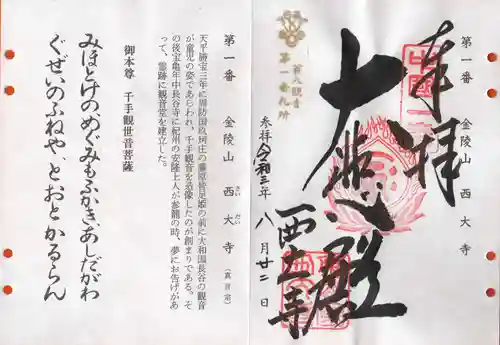 第一番 金陵山 西大寺
奉拝
大悲殿
西大寺
参拝 令和三年 八月廿二日
第一番札所
第一番 金陵山 西大寺(真言宗)
さい だい じ
天平勝宝三年に周防国玖珂庄の藤原皆足姫の前に大和国長谷の観音
が童児の姿であらわれ、千手観音を造像したのが創まりである。そ
の後宝亀年中長谷寺に紀州の安隆上人が参籠の時、夢にお告げがあ
って、霊跡に観音堂を建立した。
御本尊 千手観世音菩薩
みほとけのめぐみもふかきあしだがわ
ぐぜいのふねや、とおとかるらん